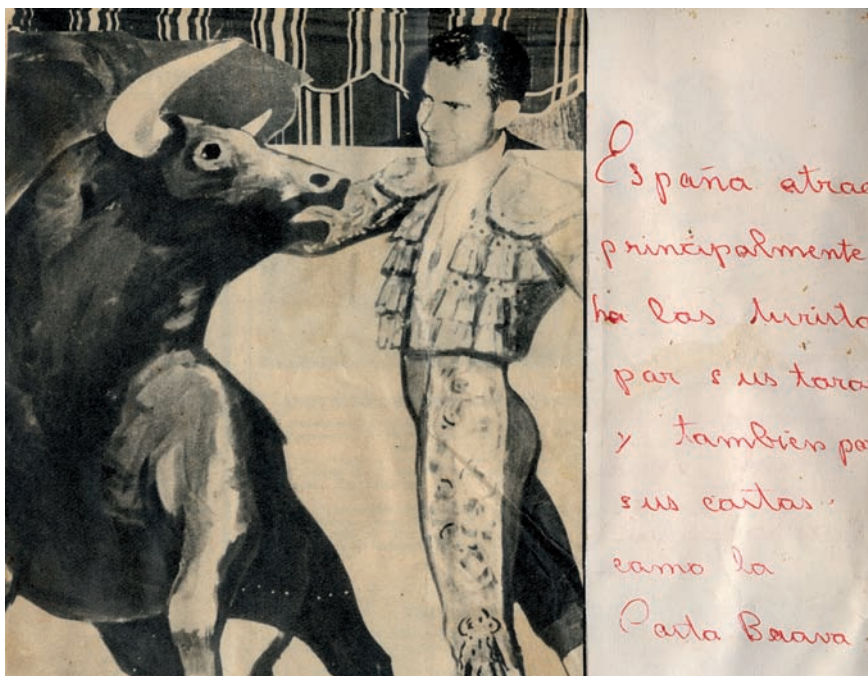 España atrae
principalmente
ha los turista
por sus toro
y tambien po
sus costas.
como la
Costa Brava